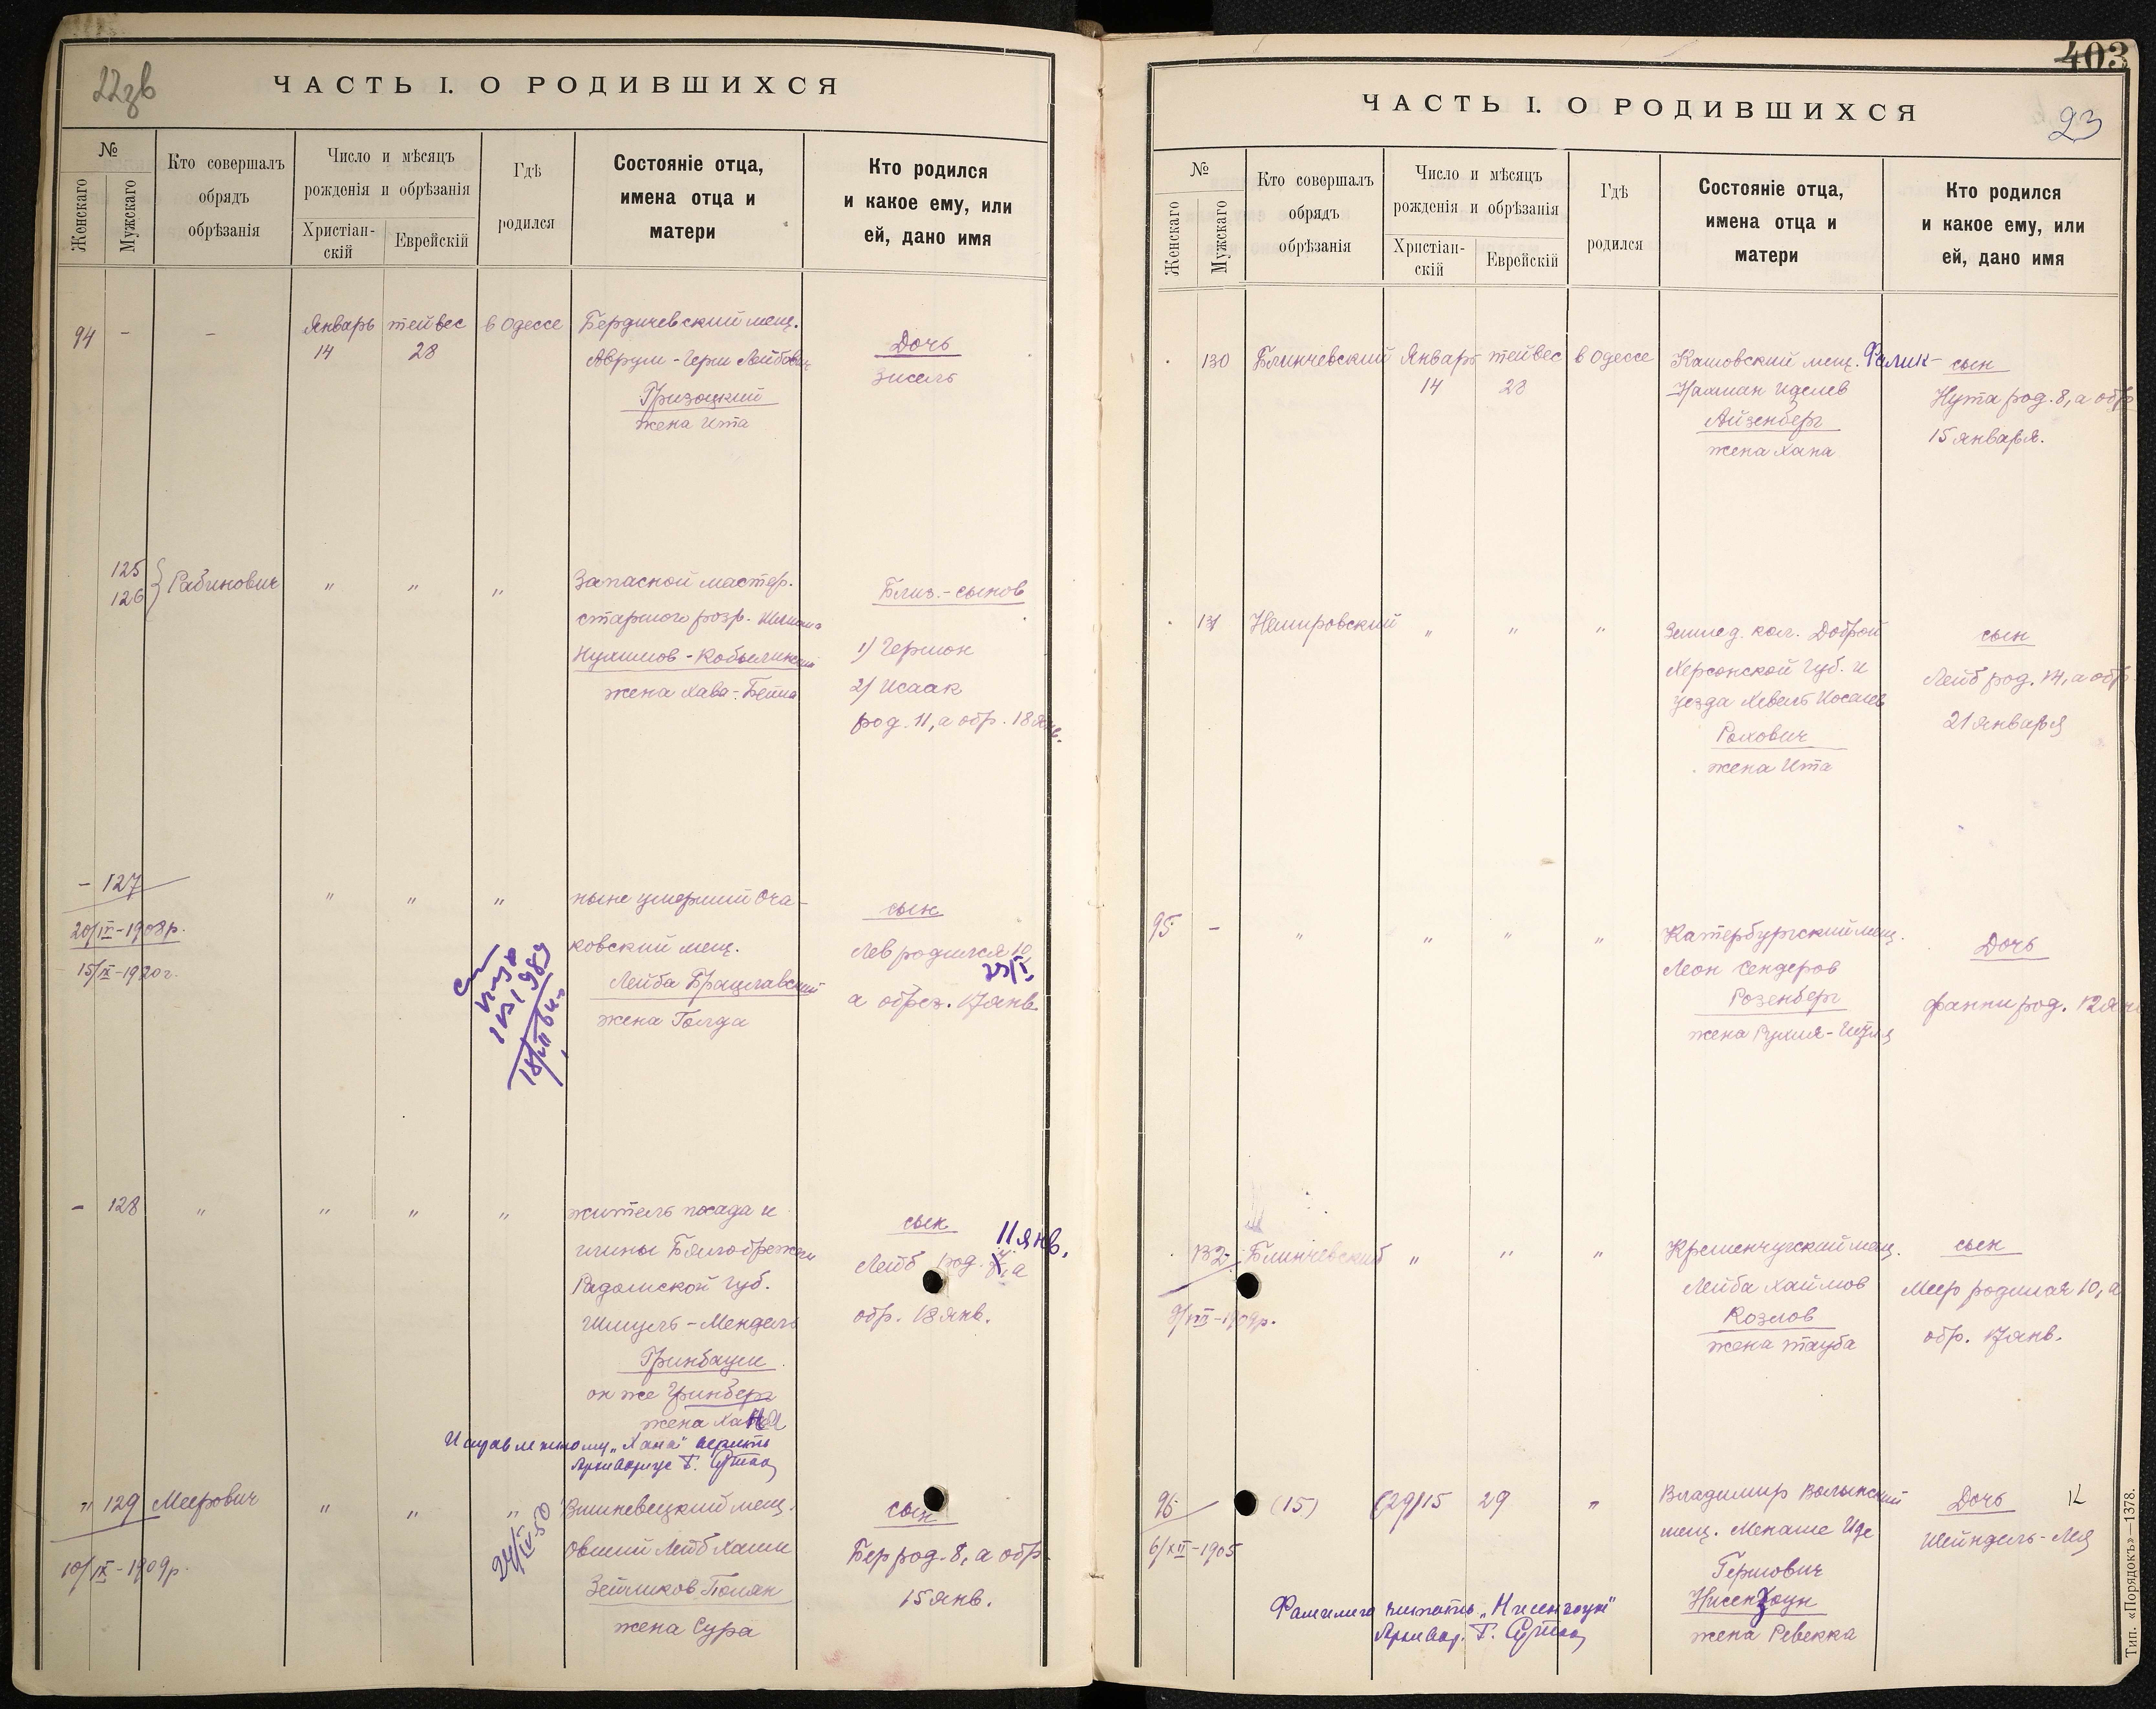 ЧАСТЬ I. О РОДИВШИХСЯ
№
Женскаго
Мужскаго
Кто совершалъ
обрядъ
обрѣзанія
Число и мѣсяцъ
рожденія и обрѣзанія
Христіан-
скій
Еврейскій
Гдѣ
родился
Состояніе отца,
имена отца и
матери
Кто родился
и какое ему, или
ей, дано имя
94 - - Январь 14 тейвес 28 в Одессе
Бердичевский мещ.
Аврум-Герш Лейбович
Гризоцкий
жена Ита
Дочь
Зисель
125
126 } Рабинович " " "
Запасной мастер.
старшого розр.
Нухимов-Кобылинский
жена Хава-Бейла
Близ.-сынов
1) Гершон
2) Исаак
род. 11, а обр. 18 янв.
- 127 " " "
20/IV-1908р.
15/IX-1920г.
ныне умерший Оча-
ковский мещ.
Лейба Брацлавский
жена Голда
сын
Лев родился 10,
а обрез. 17 янв.
- 128 " " " "
житель посада и
гмины Бялобрежеги
Радомской губ.
Шмуль-Мендель
Гринбаум
он же Гринберг
жена Хана
Исправленному „Хана" верить
Архивариус Г.
сын
11 янв.
Лейб род. а
обр. 18 янв.
" 129 Меерович " " "
10/IX-1909р.
24/IV 50
Вишневецкий мещ.
Овший Лейб Хаим
Зейликов Полян
жена Сура
сын
Бер род. 8, а обр.
15 янв.
403
ЧАСТЬ I. О РОДИВШИХСЯ
23
№
Женскаго
Мужскаго
Кто совершалъ
обрядъ
обрѣзанія
Число и мѣсяцъ
рожденія и обрѣзанія
Христіан-
скій
Еврейскій
Гдѣ
родился
Состояніе отца,
имена отца и
матери
Кто родился
и какое ему, или
ей, дано имя
130 Блинчевский Январь 14 тейвес 28 в Одессе
Кашовский мещ. Фалик-
Нахман Иделев
Айзенберг
жена Хана
сын
Нута род. 8, а обр.
15 января.
131 Немировский " " "
Землед. кол. Доброй
Херсонской губ. и
уезда Хевель Иоселев
Рахович
жена Ита
сын
Лейб род. 14, а обр.
21 января
95 - " " " "
Катербургский мещ.
Леон Сендеров
Розенберг
жена Рухля-
Дочь
Фанни род. 12 янв
132 Блинчевский " " "
Кременчугский мещ.
Лейба Хаймов
Козлов
жена Тауба
сын
Меер родился 10, а
обр. 17 янв.
96 (15) (29)15 29 "
6/XII-1905
Владимир Волынский
мещ. Менаше Иде
Гершович
Нисензоун
жена Ревекка
Дочь
Шейндель-Лея
Фамилию читать „Нисензоун"
Архивар. Г.
Тип. «Порядокъ»—1378.